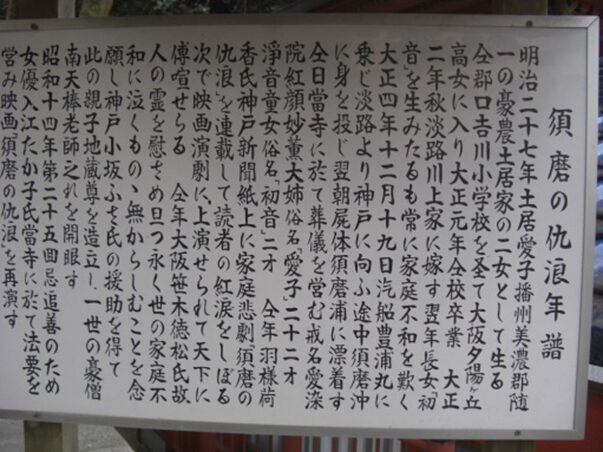 須磨の仇浪年譜
明治二十七年土居愛子播州美濃郡随
一の豪農土居家の二女として生る
仝郡口吉川小学校を全て大阪夕陽ヶ丘
高女に入り大正元年仝校卒業 大正
二年秋淡路川上家に嫁す翌年長女「初
音」を生みたるも常に家庭不和を歎く
大正四年十二月十九日汽船豊浦丸に
乗じ淡路より神戸に向ふ途中須磨沖
に身を投じ翌朝屍体須磨浦に漂着す
仝日當寺に於て葬儀を営む戒名愛染
院紅顔妙薫大姉俗名「愛子」二十二才
淨音童女俗名「初音」二才 仝年羽様荷
香氏神戸新聞紙上に家庭悲劇「須磨の
仇浪」を連載して読者の紅涙をしぼる
次で映画演劇に上演せられて天下に
傳喧せらる 仝年大阪笹木徳松氏故
人の霊を慰さめ旦つ永く世の家庭不
和に泣くもの丶無からしむことを念
願し神戸小坂ふさ氏の援助を得て
此の親子地蔵尊を造立し一世の豪僧
南天棒老師之れを開眼す
昭和十四年第二十五回忌追善のため
女優入江たか子氏當寺に於て法要を
営み映画須磨の仇浪を再演す